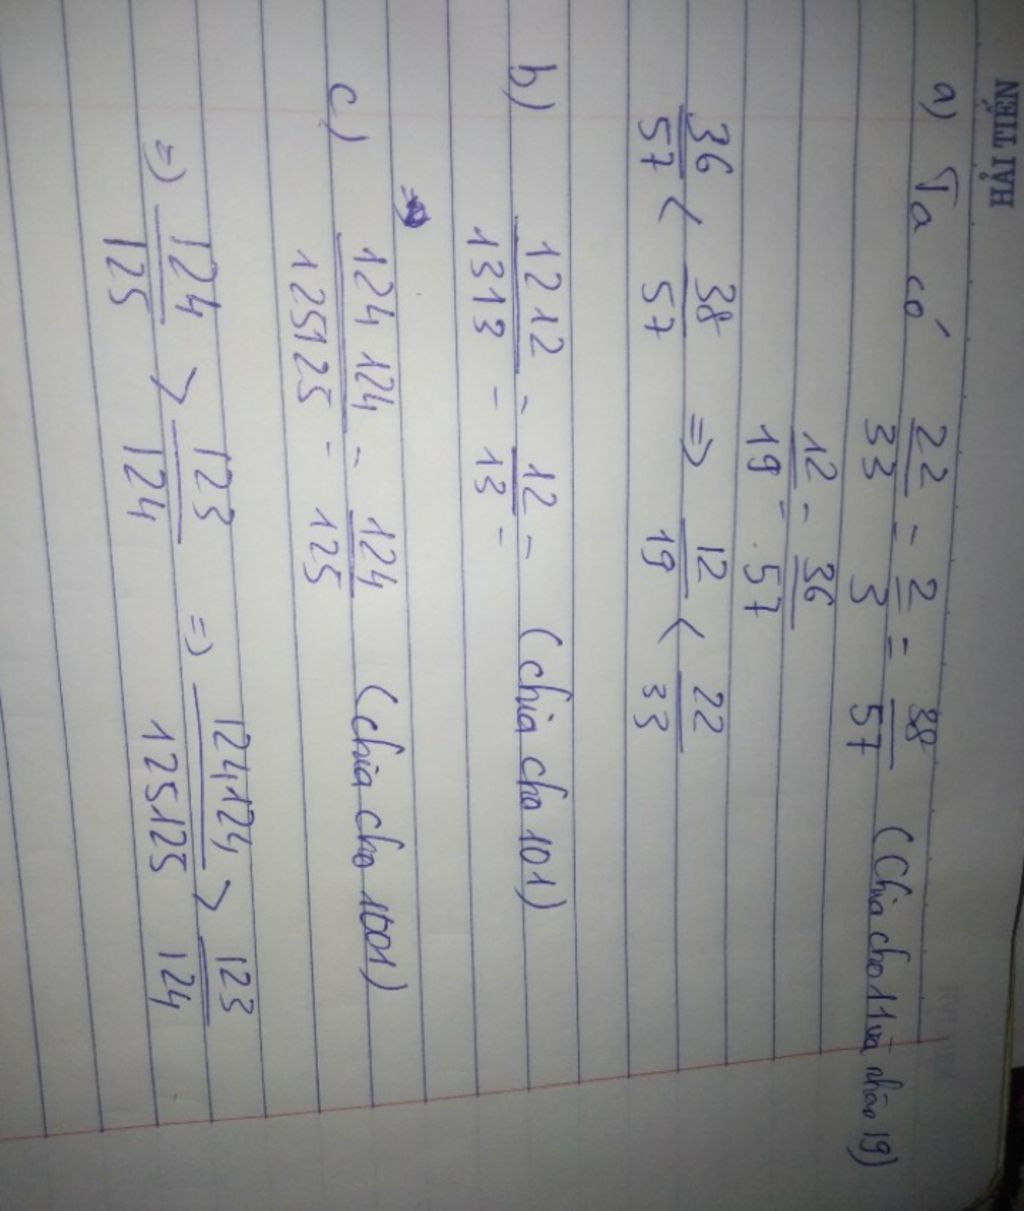 HẢI TIẾN
a) Ta có 22/33 = 2/3 = 38/57 (Chia cho 11 và nhân 19)
12/19 = 36/57
36/57 < 38/57 => 12/19 < 22/33
b) 1212/1313 = 12/13 = (chia cho 101)
c) 124124/125125 = 124/125 (chia cho 1001)
=> 124/125 > 123/124 => 124124/125125 > 123/124